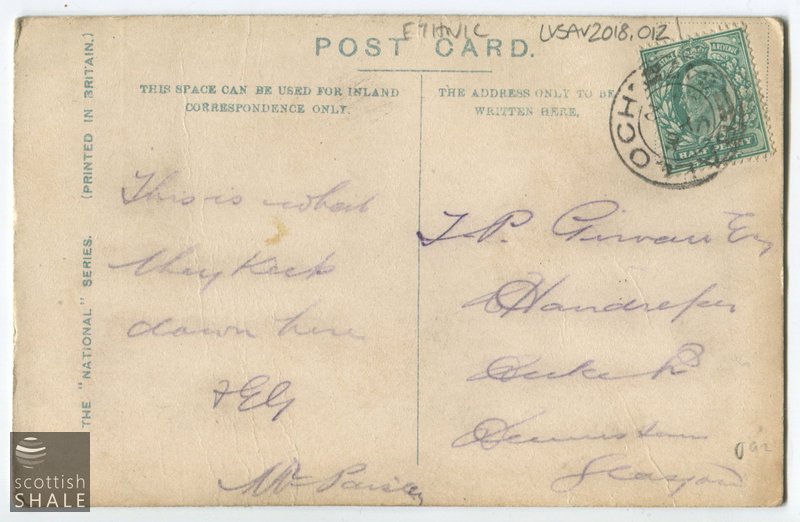 ETHNIC LVSAV2018.012
POST CARD.
THIS SPACE CAN BE USED FOR INLAND
CORRESPONDENCE ONLY.
THE ADDRESS ONLY TO BE
WRITTEN HERE,
HALF PENNY
THE "NATIONAL" SERIES. (PRINTED IN BRITAIN.)
This is what
they keep
down here
J. P. Girvan Esq
Duke St
Dennistoun
Glasgow
Mr Paisley
scottish
SHALE